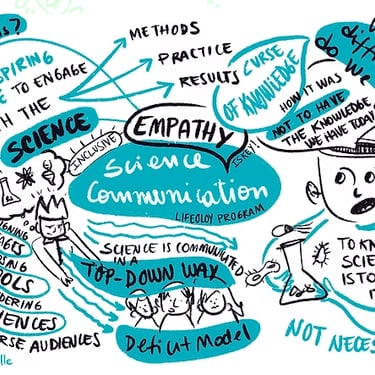 S?
SPIRING
E TO ENGAGE
TH THE
SCIENCE
METHODS
PRACTICE
RESULTS
CURSE
OF KNOWLEDGE
HOW IT WAS
NOT TO HAVE
THE KNOWLEDGE
WE HAVE TODAY
do We
EMPATHY
IS KEY!
INCLUSIVE
Science
Communication
LIFEOLOY PROGRAM
SCIENCE IS COMMUNICATED
IN A
TOP-DOWN WAY
Deficit Model
ENING
AGES
OOLS
DERING
IENCES
RSE AUDIENCES
lle
TO KN
SCIEN
IS TO
NOT NECES